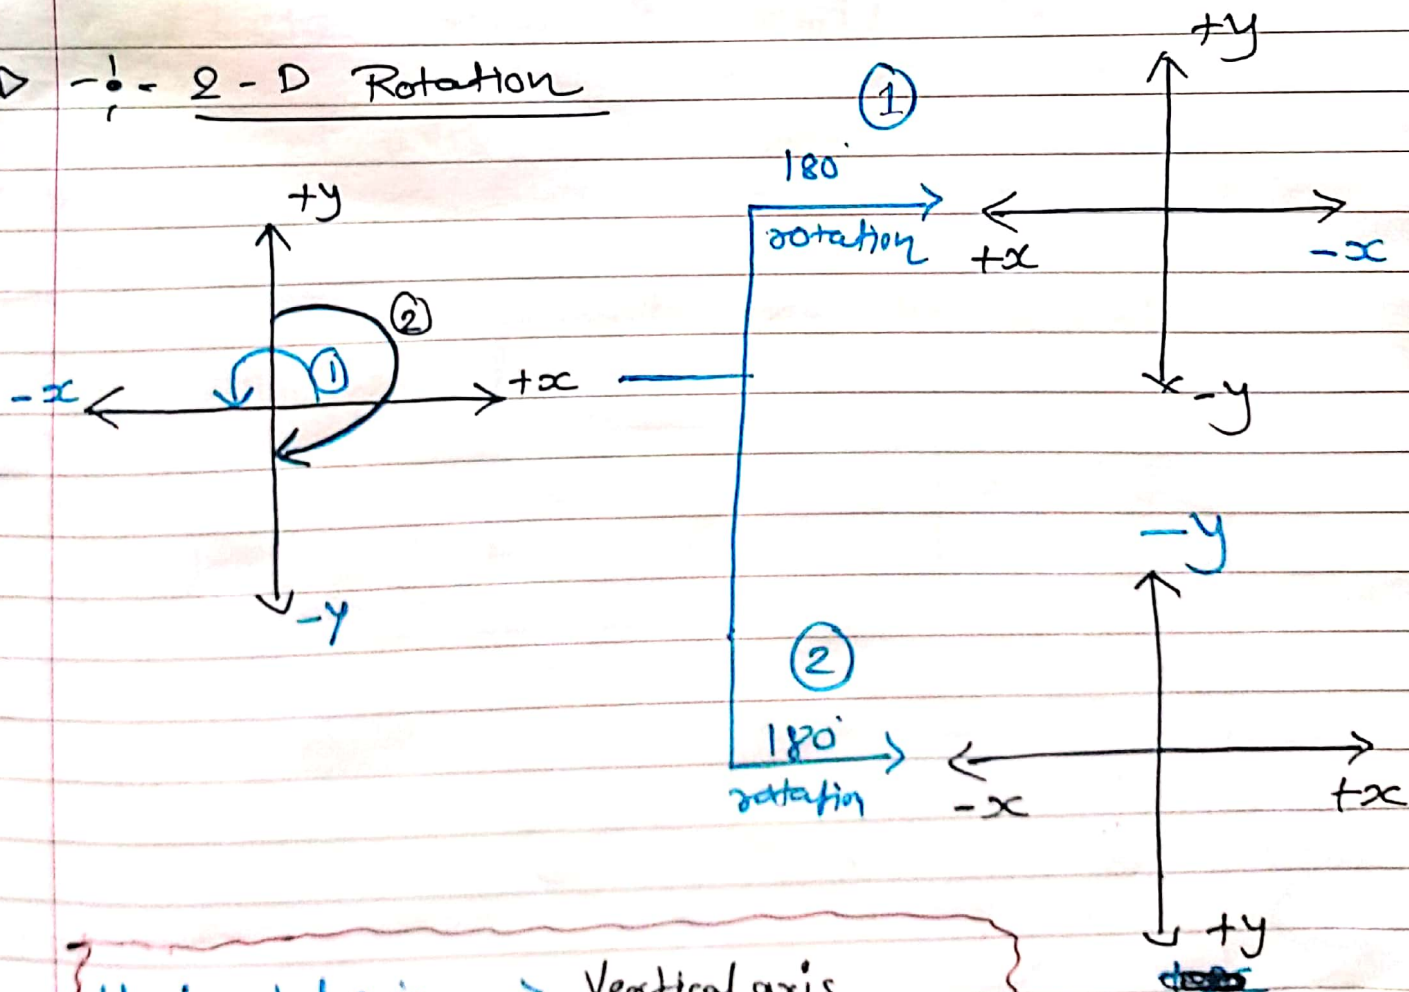 2-D Rotation
+y
①
180°
rotation
+x
-x
-y
+y
②
①
-x
+x
-y
②
180°
rotation
-y
-x
+x
+y
Vertical axis